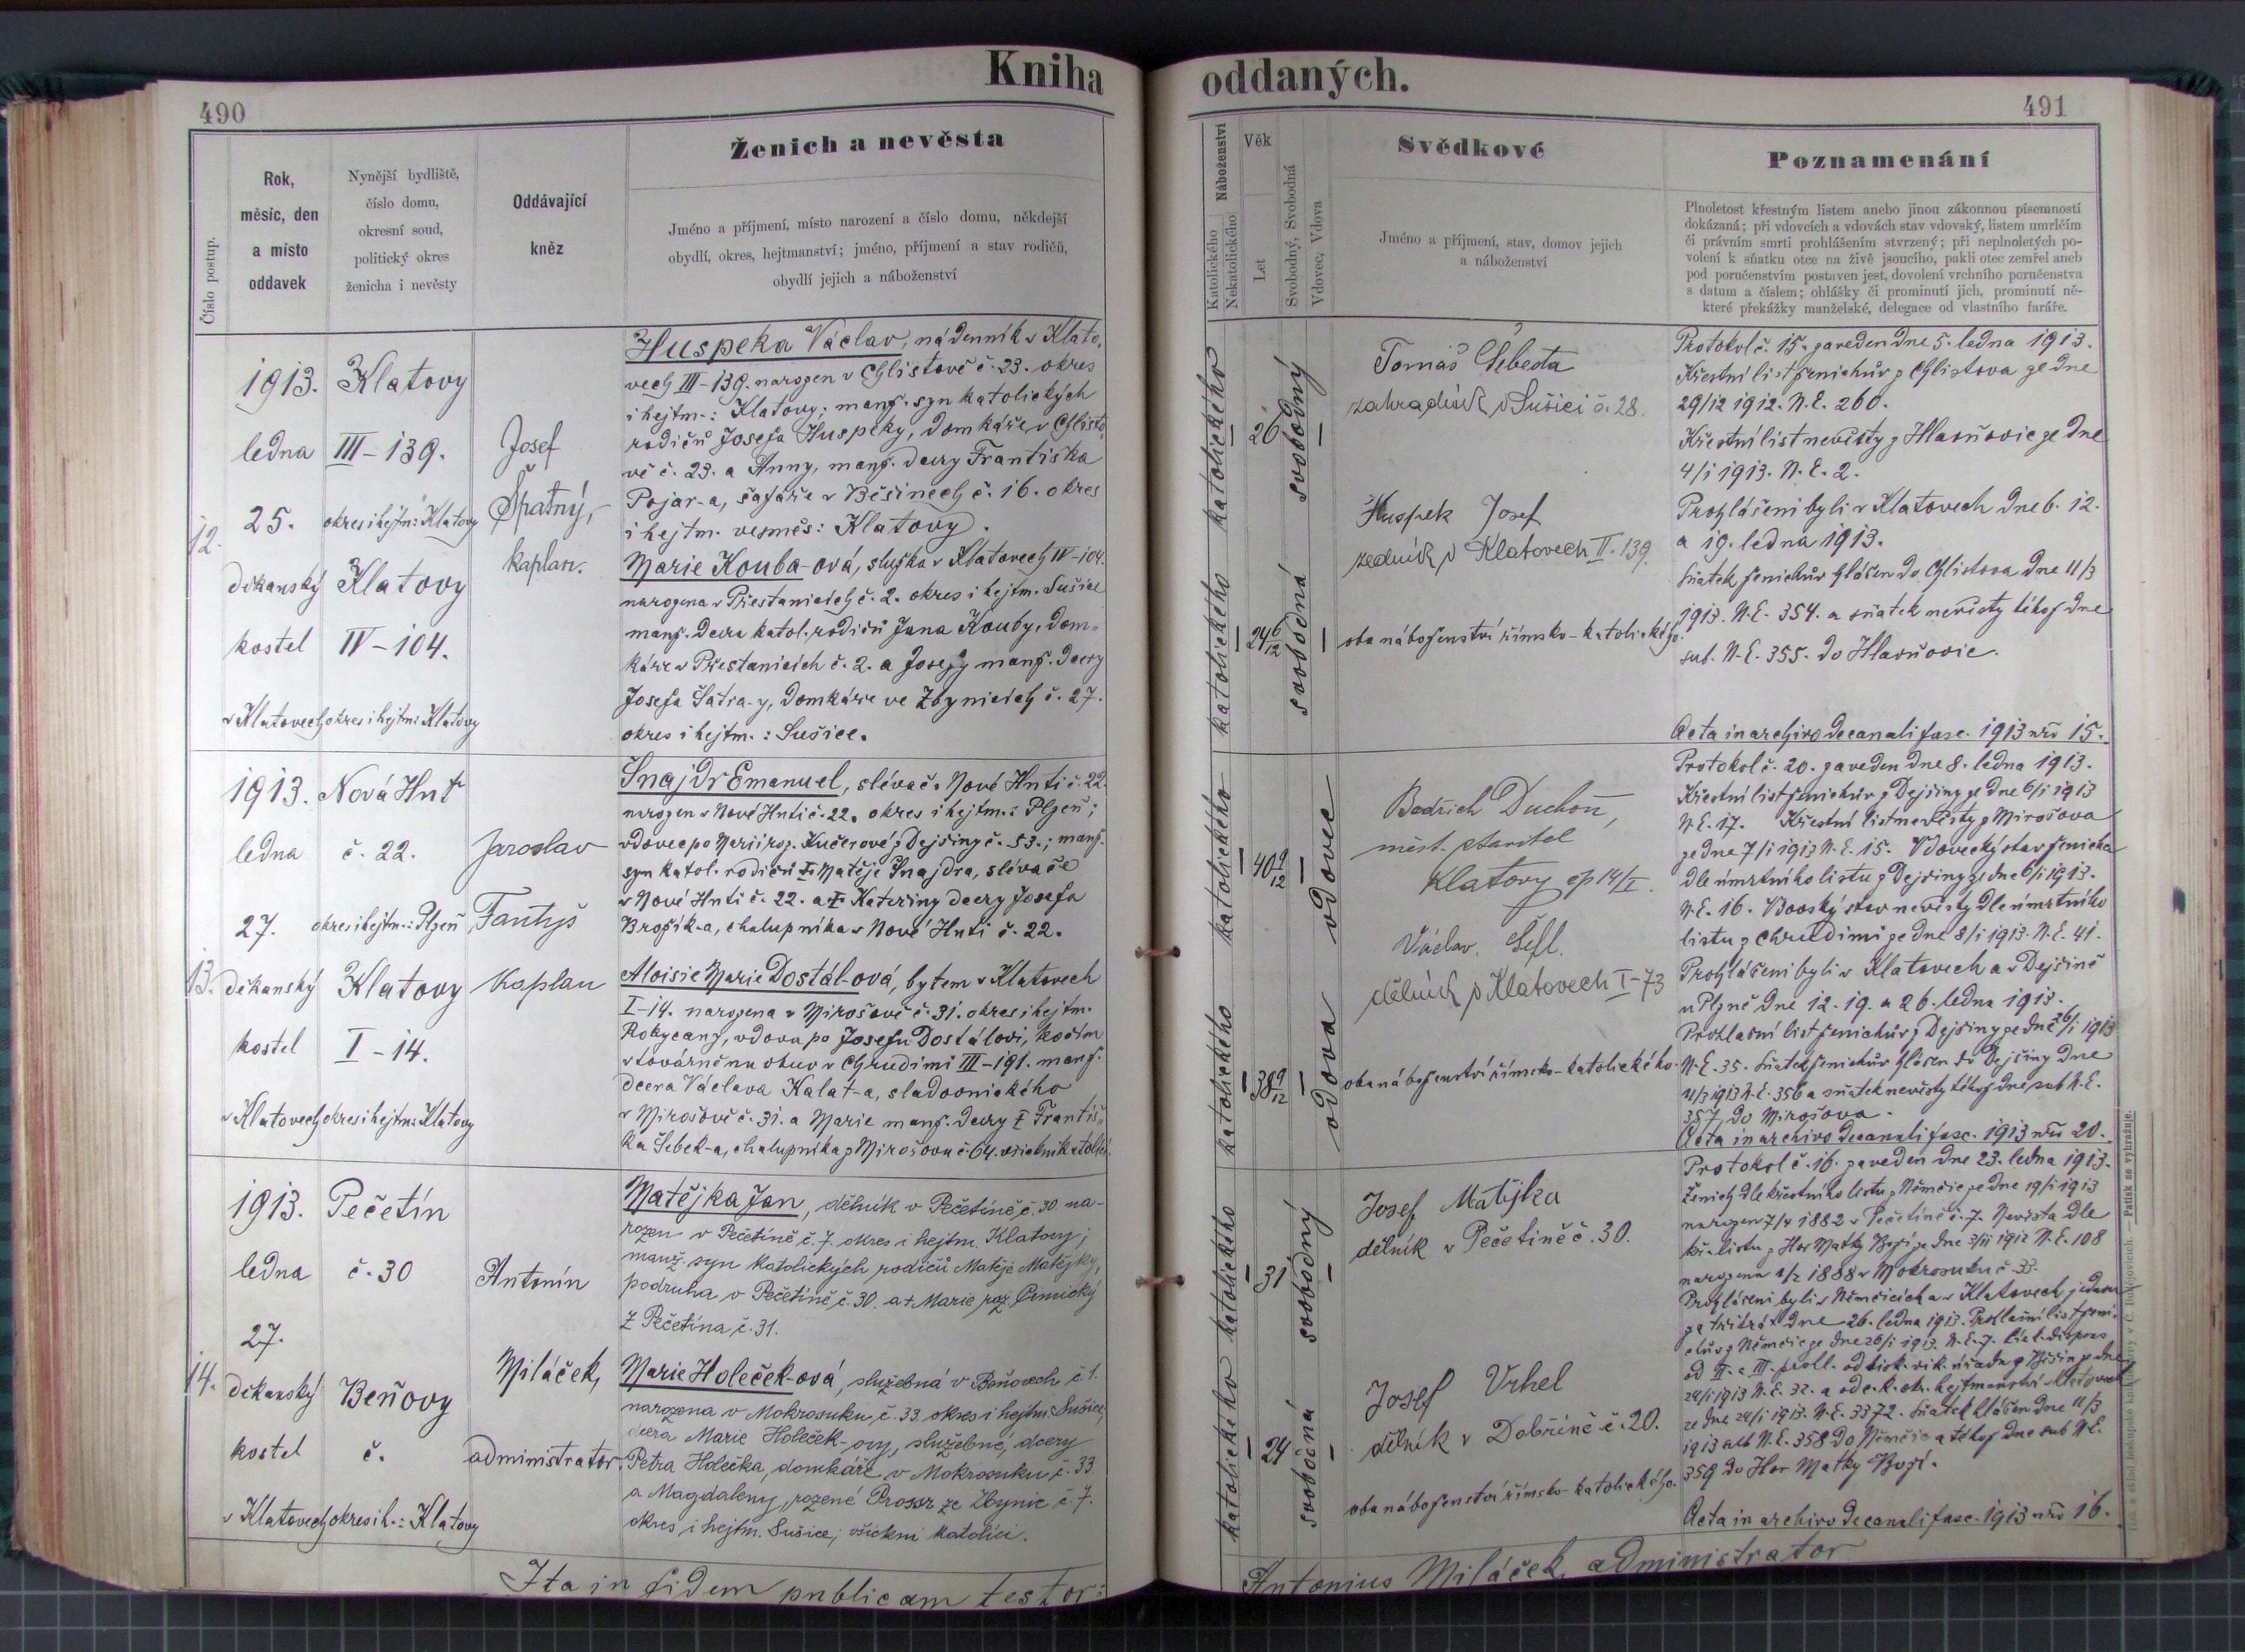 Kniha oddaných.
490
491
Číslo postup.
Rok,
měsíc, den
a místo
oddavek
Nynější bydliště,
číslo domu,
okresní soud,
politický okres
ženicha i nevěsty
Oddávající
kněz
Ženich a nevěsta
Jméno a příjmení, místo narození a číslo domu, někdejší
obydlí, okres, hejtmanství; jméno, příjmení a stav rodičů,
obydlí jejich a náboženství
Náboženství
Katolického
Nekatolického
Věk
Let
Svobodný, Svobodná
Vdovec, Vdova
Svědkové
Jméno a příjmení, stav, domov jejich
a náboženství
Poznamenání
Plnoletost křestným listem anebo jinou zákonnou písemností
dokázaná; při vdovcích a vdovách stav vdovský, listem umrlčím
či právním smrti prohlášením stvrzený; při neplnoletých po-
volení k sňatku otce na živě jsoucího, pakli otec zemřel aneb
pod poručenstvím postaven jest, dovolení vrchního poručenstva
s datum a číslem; ohlášky či prominutí jich, prominutí ně-
které překážky manželské, delegace od vlastního faráře.
12.
1913.
ledna
25.
děkanský
kostel
v Klatovech
Klatovy
III-139.
okres i hejtm: Klatovy
Klatovy
IV-104.
okres i hejtm: Klatovy
Josef
Špatný,
kaplan.
Huspeka Václav, nádenník v Klato-
vech III-139. narozen v Chlistově č. 23. okres
i hejtm.: Klatovy; manž. syn katolických
rodičů Josefa Huspeky, domkáře v Chlisto-
vě č. 23. a Anny, manž. dcery Františka
Pojar-a, šafáře v Běšinech č. 16. okres
i hejtm. vesměs: Klatovy.
Marie Kouba-ová, služka v Klatovech IV-104.
narozena v Přestanicích č. 2. okres i hejtm. Sušice
manž. dcera katol. rodičů Jana Kouby, dom-
káře v Přestanicích č. 2. a Josefy manž. dcery
Josefa Šatra-y, domkáře ve Zbynicích č. 27.
okres i hejtm.: Sušice.
katolického
26
svobodný
katolického
24 6/12
svobodná
Tomáš Šebesta
zahradník v Sušici č. 28.
Huspek Josef
zedník v Klatovech II. 139.
oba náboženství římsko-katolického.
Protokol č. 15. zaveden dne 5. ledna 1913.
Křestní list ženichův z Chlistova ze dne
29/12 1912. N. E. 260.
Křestní list nevěsty z Hlavňovic ze dne
4/1 1913. N. E. 2.
Prohlášeni byli v Klatovech dne 6. 12.
a 19. ledna 1913.
Sňatek ženichův hlášen do Chlistova dne 11/3
1913. N. E. 354. a sňatek nevěsty téhož dne
sub. N. E. 355. do Hlavňovic.
Acta in archivo decanali fasc. 1913 nro 15.
13.
1913.
ledna
27.
děkanský
kostel
v Klatovech
Nová Huť
č. 22.
okres i hejtm.: Plzeň
Klatovy
I-14.
okres i hejtm: Klatovy
Jaroslav
kaplan
Šnajdr Emanuel, slévač v Nové Huti č. 22.
narozen v Nové Huti č. 22. okres i hejtm.: Plzeň;
vdovec po Marii roz. Kučerové z Dejšiny č. 53.; manž.
syn katol. rodičů † Matěje Šnajdra, slévače
v Nové Huti č. 22. a † Kateřiny dcery Josefa
Brožík-a, chalupníka v Nové Huti č. 22.
Aloisie Marie Dostál-ová, bytem v Klatovech
I-14. narozena v Mirošově č. 31. okres i hejtm.
Rokycany, vdova po Josefu Dostálovi, kočím
v továrně na obuv v Chrudimi III-191. manž.
dcera Václava Kalat-a, sladovnického
v Mirošově č. 31. a Marie manž. dcery † Františ-
ka Šebek-a, chalupníka z Mirošova č. 64. všichni katolíci.
katolického
40 9/12
vdovec
katolického
38 9/12
vdova
Bedřich Duchoň,
měst. stavitel
Klatovy čp 14/I.
Václav
dělník v Klatovech I-73
oba náboženství římsko-katolického.
Protokol č. 20. zaveden dne 8. ledna 1913.
Křestní list ženichův z Dejšiny ze dne 6/1 1913
N. E. 17. Křestní list nevěsty z Mirošova
ze dne 7/1 1913 N. E. 15. Vdovecký stav ženicha
dle úmrtního listu z Dejšiny ze dne 6/1 1913.
N. E. 16. Vdovský stav nevěsty dle úmrtního
listu z Chrudimi ze dne 8/1 1913. N. E. 41.
Prohlášeni byli v Klatovech a v Dejšině
u Plzně dne 12. 19. a 26. ledna 1913.
Prohlasní list ženichův z Dejšiny ze dne 26/1 1913
N. E. 35. Sňatek ženichův hlášen do Dejšiny dne
11/3 1913 N. E. 356 a sňatek nevěsty téhož dne sub N. E.
357, do Mirošova.
Acta in archivo decanali fasc. 1913 nro 20.
14.
1913.
ledna
27.
děkanský
kostel
v Klatovech
Pečetín
č. 30
Beňovy
č.
okres i h.: Klatovy
Antonín
Miláček,
administrator.
Matějka Jan, dělník v Pečetíně č. 30. na-
rozen v Pečetíně č. 7. okres i hejtm. Klatovy;
manž. syn katolických rodičů Matěje Matějky,
podruha v Pečetíně č. 30. a † Marie roz.
z Pečetína č. 31.
Marie Holeček-ová, služebná v Beňovech č 1.
narozena v Mokrosuku č. 33. okres i hejtm. Sušice,
dcera Marie Holeček-ovy, služebné, dcery
Petra Holečka, domkáře v Mokrosuku č. 33
a Magdaleny, rozené Prosser ze Zbynic č. 7.
okres i hejtm. Sušice; všickni katolíci.
katolického
31
svobodný
katolického
24
svobodná
Josef Matějka
dělník v Pečetíně č. 30.
Josef Vrhel
dělník v Dobříně č. 20.
oba náboženství římsko-katolického.
Protokol č. 16. zaveden dne 23. ledna 1913.
Ženich dle křestního listu z Němčic ze dne 19/1 1913
narozen 7/V 1882 v Pečetíně č. 7. Nevěsta dle
kř. listu z Hor Matky Boží ze dne 3/III 1912 N. E. 108
1888 v Mokrosuku č. 33.
Prohlášeni byli v Němčicích a v Klatovech jednou
za třikrát dne 26. ledna 1913. Prohlašní list ženi-
chův z Němčic ze dne 26/1 1913. N. E. 7.
24/1 1913 N. E. 32. a od c. k. okr. hejtmanství v Klatovech
ze dne 24/1 1913. N. E. 3372. Sňatek hlášen dne 11/3
1913 sub N. E. 358 do Němčic a téhož dne sub N. E.
359 do Hor Matky Boží.
Acta in archivo decanali fasc. 1913 nro 16.
Ita in fidem publicam testor:
Antonius Miláček, administrator
Patisk se vyhražuje.